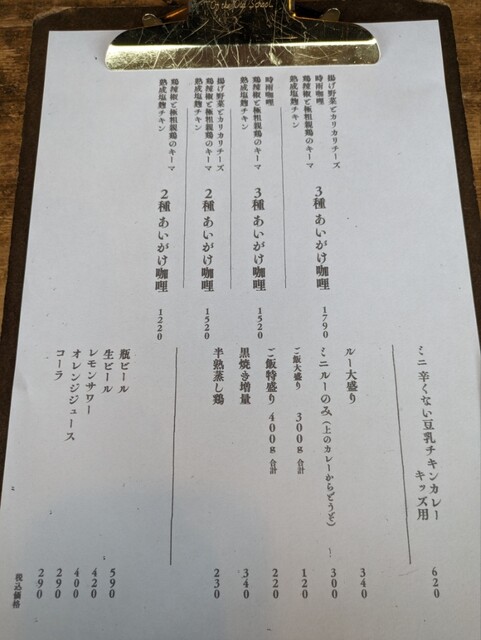 Of the Old School
揚げ野菜とカリカリチーズ
時雨咖喱
鶏辣椒と極粗親鶏のキーマ
熟成塩麹チキン
3種 あいがけ咖喱 1790
時雨咖喱
鶏辣椒と極粗親鶏のキーマ
熟成塩麹チキン
3種 あいがけ咖喱 1520
揚げ野菜とカリカリチーズ
鶏辣椒と極粗親鶏のキーマ
熟成塩麹チキン
2種 あいがけ咖喱 1520
鶏辣椒と極粗親鶏のキーマ
熟成塩麹チキン
2種 あいがけ咖喱 1220
ミニ 辛くない豆乳チキンカレー 620
キッズ用
ルー大盛り 340
ミニルーのみ(上のカレーからどうぞ) 300
ご飯大盛り 300g 合計 120
ご飯特盛り 400g 合計 220
黒焼き増量 340
半熟蒸し鶏 230
瓶ビール 590
生ビール 420
レモンサワー 400
オレンジジュース 290
コーラ 290
税込価格